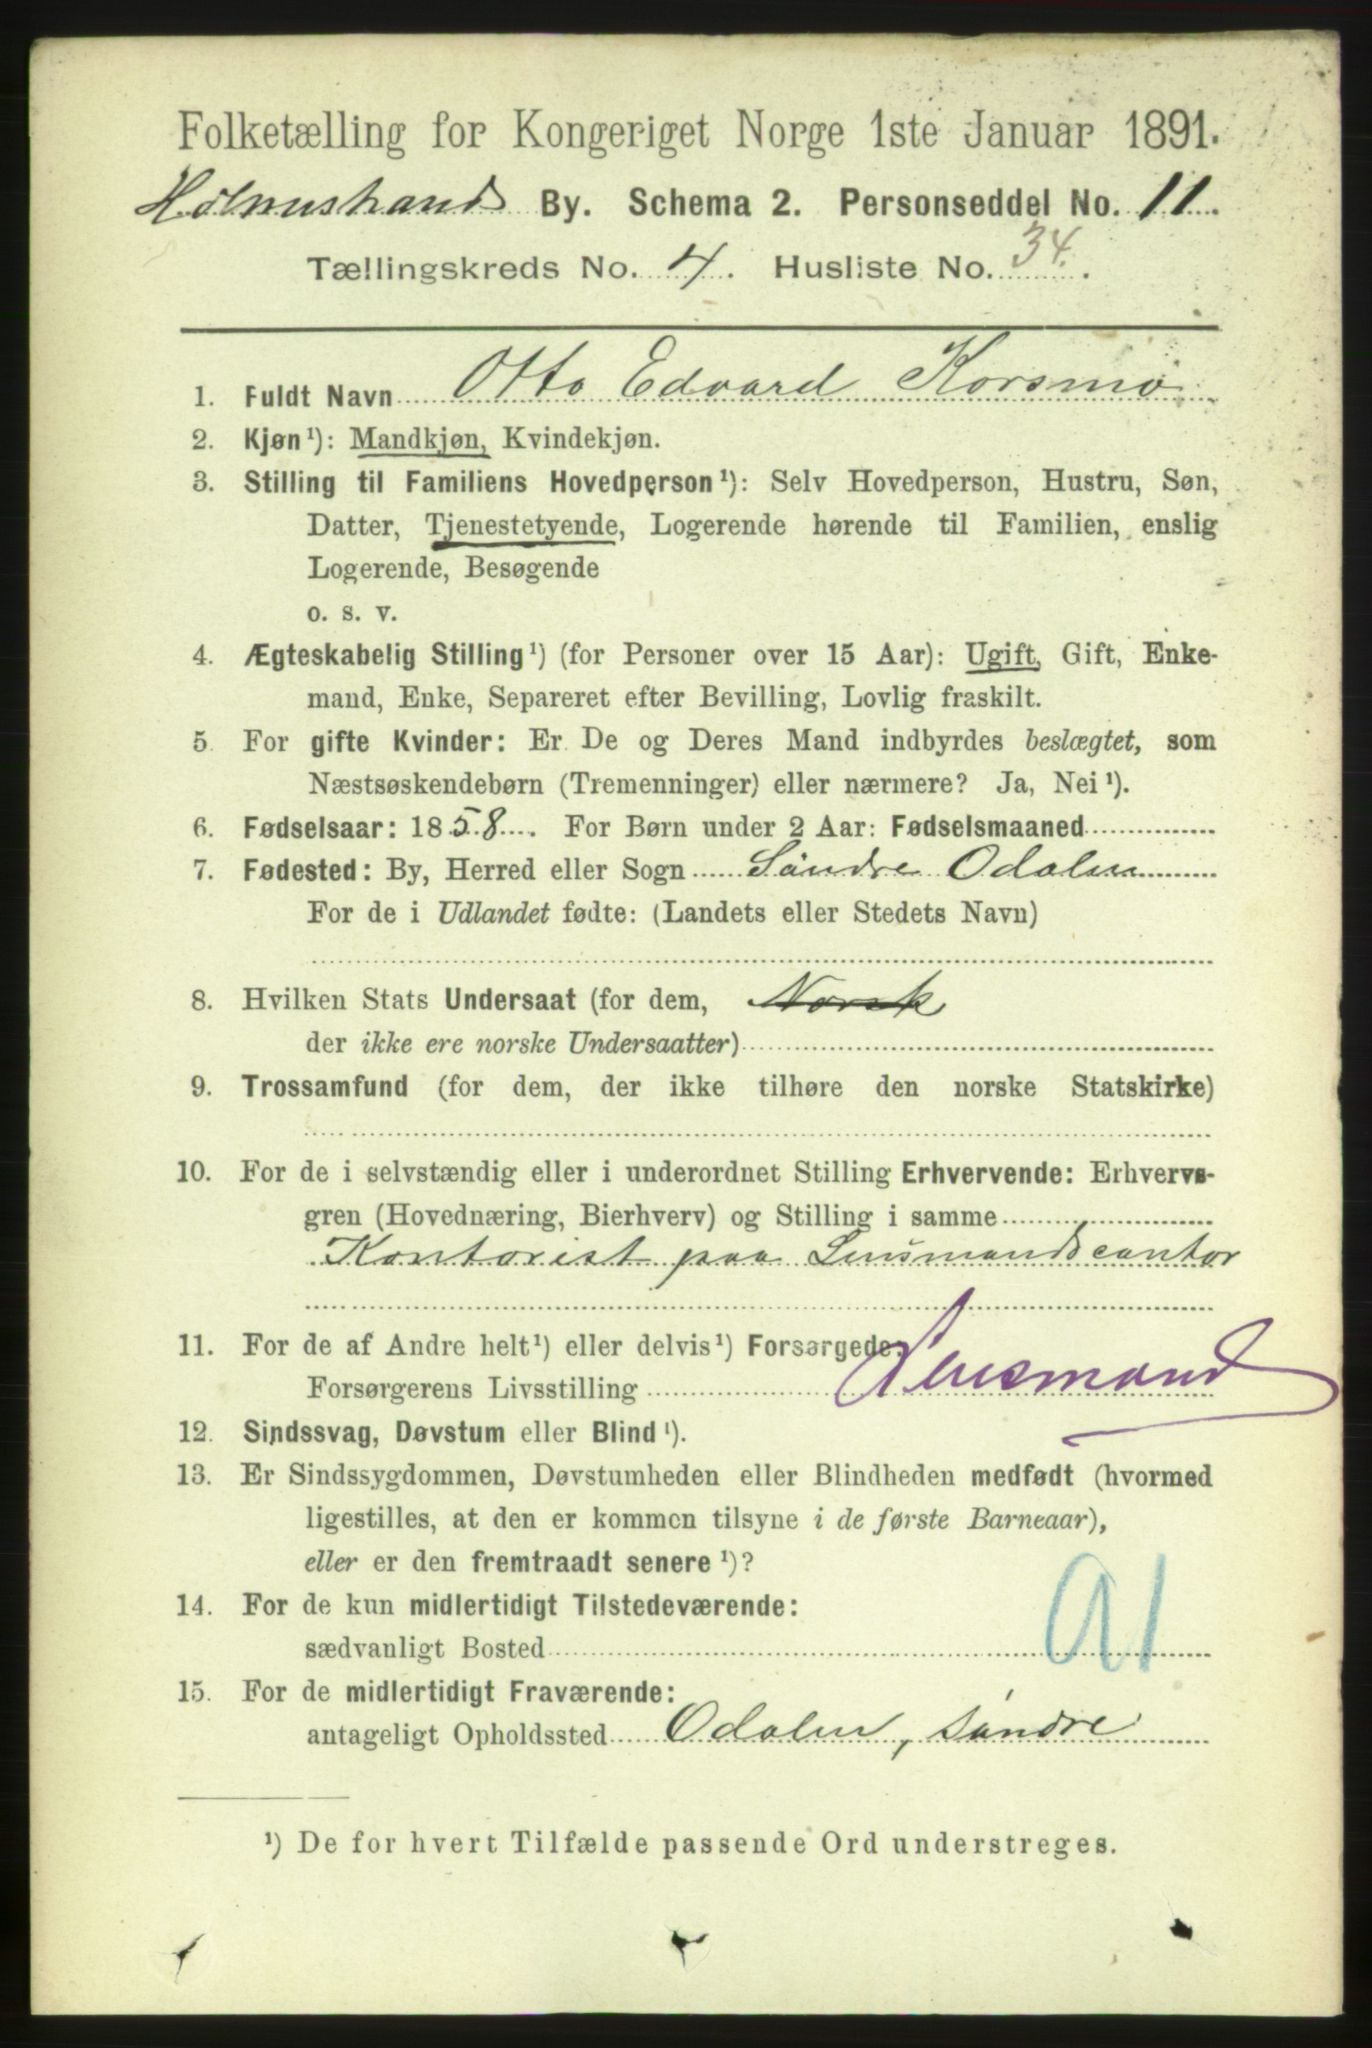 Folketælling for Kongeriget Norge 1ste Januar 1891.
Holmestrand By. Schema 2. Personseddel No. 11.
Tællingskreds No. 4. Husliste No. 34.
1. Fuldt Navn Otto Edvard Korsmo
2. Kjøn¹): Mandkjøn, Kvindekjøn.
3. Stilling til Familiens Hovedperson¹): Selv Hovedperson, Hustru, Søn,
Datter, Tjenestetyende, Logerende hørende til Familien, enslig
Logerende, Besøgende
o. s. v.
4. Ægteskabelig Stilling¹) (for Personer over 15 Aar): Ugift, Gift, Enke-
mand, Enke, Separeret efter Bevilling, Lovlig fraskilt.
5 For gifte Kvinder: Er De og Deres Mand indbyrdes beslægtet, som
Næstsøskendebørn (Tremenninger) eller nærmere? Ja, Nei¹).
6. Fødselsaar: 1858. For Børn under 2 Aar: Fødselsmaaned
7. Fødested: By, Herred eller Sogn Søndre Odalen
For de i Udlandet fødte: (Landets eller Stedets Navn)
8. Hvilken Stats Undersaat (for dem, Norsk
der ikke ere norske Undersaatter)
9. Trossamfund (for dem, der ikke tilhøre den norske Statskirke)
10. For de i selvstændig eller i underordnet Stilling Erhvervende: Erhvervs-
gren (Hovednæring, Bierhverv) og Stilling i samme
Kontorist paa Lensmandscontor
11. For de af Andre helt¹) eller delvis¹) Forsørgede:
Forsørgerens Livsstilling Lensmand
12. Sindssvag, Døvstum eller Blind¹).
13. Er Sindssygdommen, Døvstumheden eller Blindheden medfødt (hvormed
ligestilles, at den er kommen tilsyne i de første Barneaar),
eller er den fremtraadt senere¹)?
14. For de kun midlertidigt Tilstedeværende:
sædvanligt Bosted
91
15. For de midlertidigt Fraværende:
antageligt Opholdssted Odalen, søndre
¹) De for hvert Tilfælde passende Ord understreges.